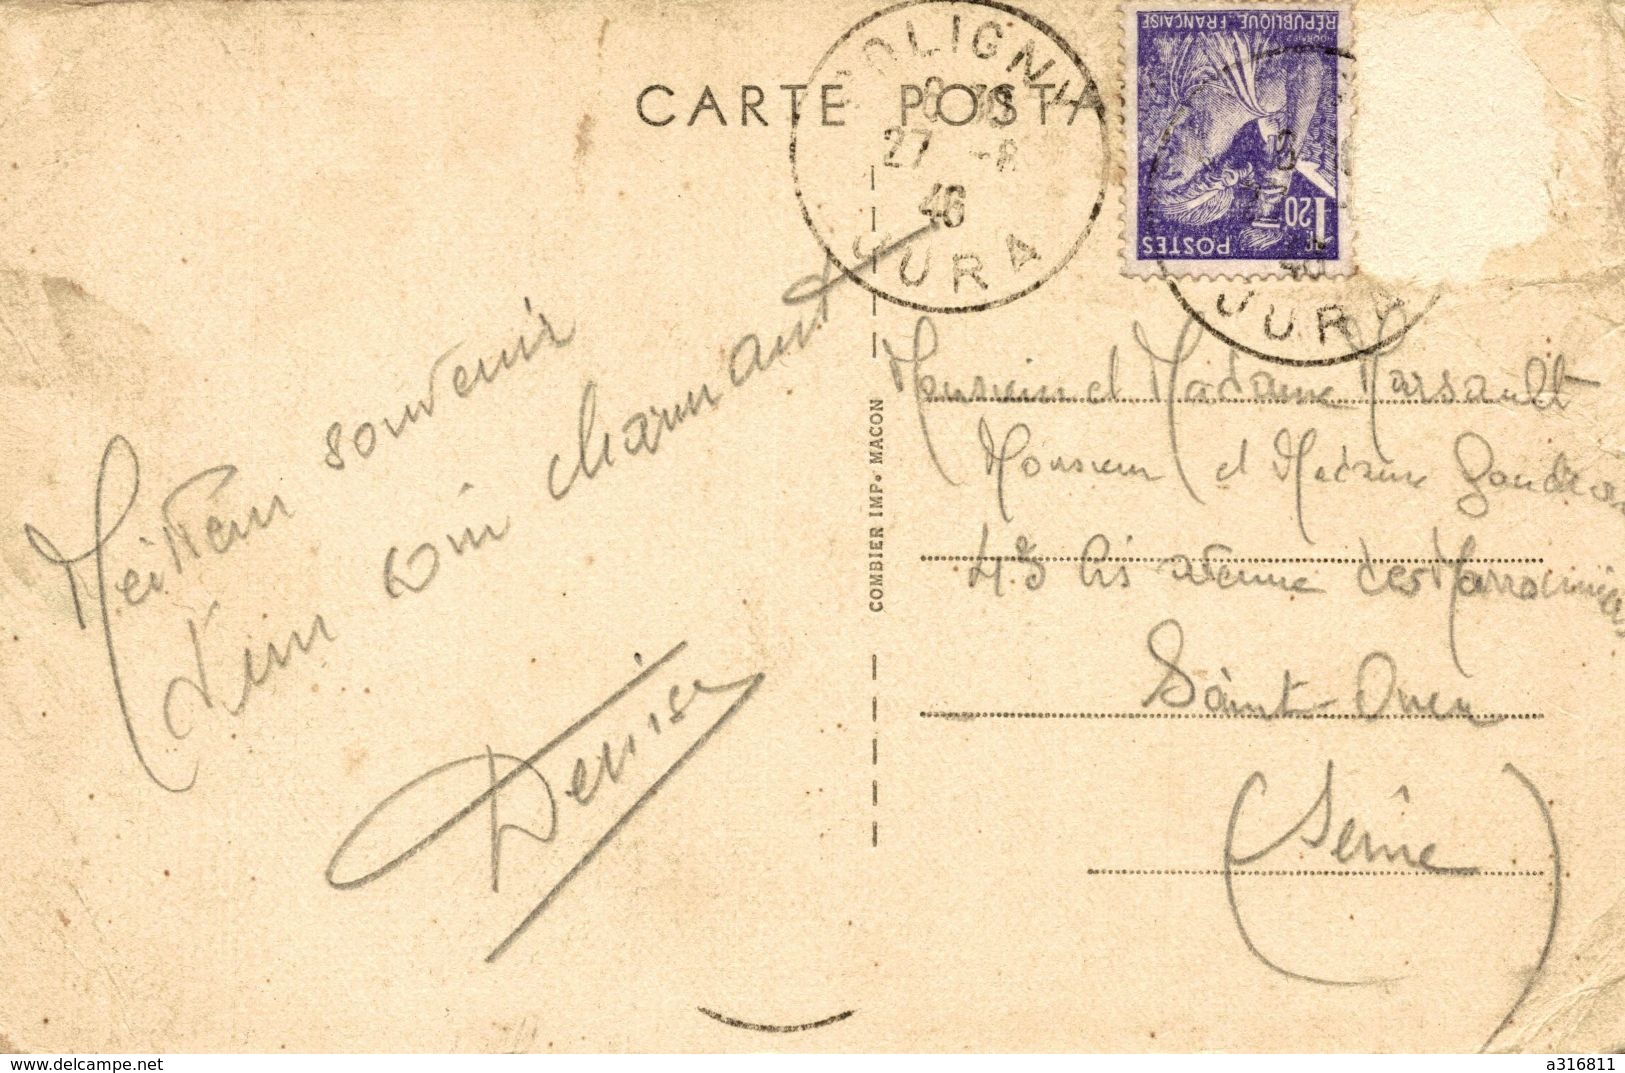 CARTE POSTA
POLIGNY
27 -8
46
JURA
RÉPUBLIQUE FRANÇAISE
1,20
POSTES
JURA
Meilleur souvenir
d'un coin charmant
Denise
COMBIER IMP. MACON
Monsieur et Madame Marsault
Monsieur et Madame
43 bis avenue des Marronniers
Saint-Ouen
(Seine)
www.delcampe.net
a316811